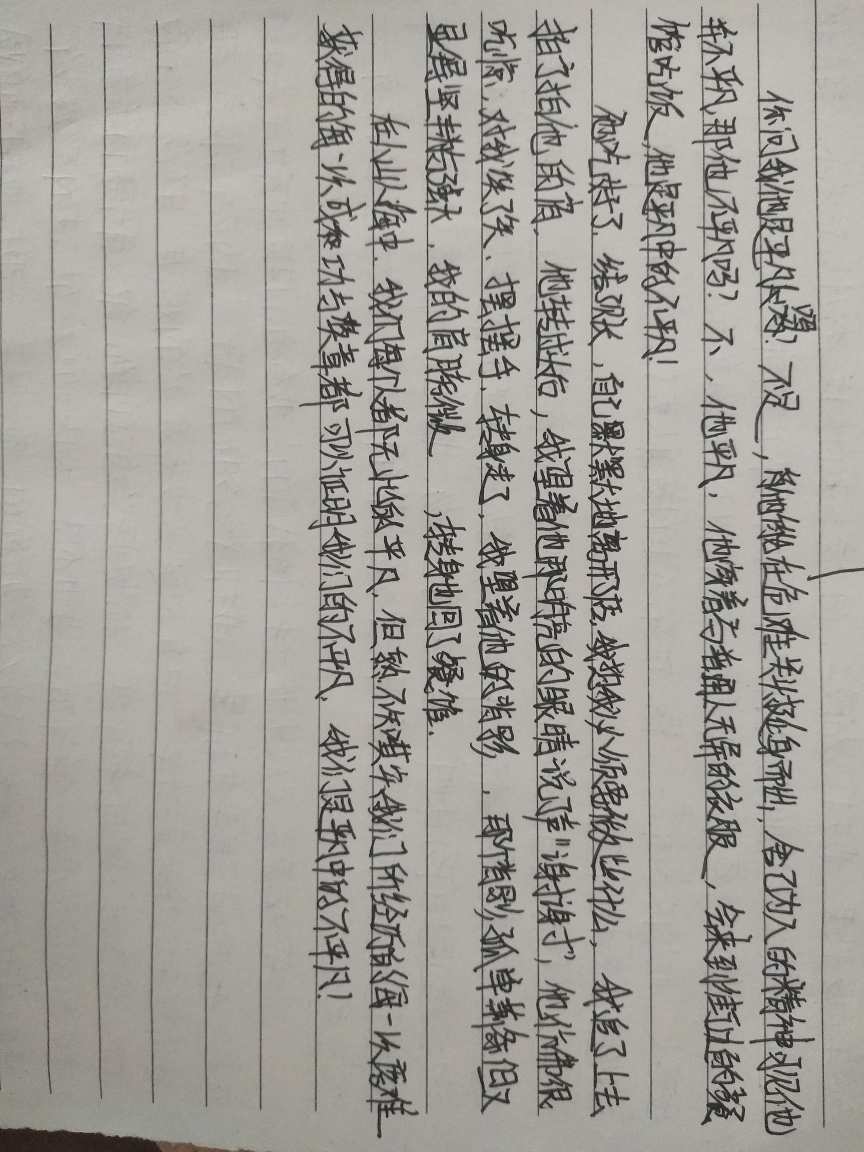 你问我他是平凡的吗？不是，有他能在危难关头挺身而出，舍己为人的精神可见他
并不平凡，那他不平凡吗？不，他平凡，他穿着与普通人无异的衣服，会来到街边的餐
馆吃饭，他是平凡中的不平凡！
他吃好了，结了账，自己默默地离开了店，我想我必须要做些什么，我追了上去
拍了拍他的肩，他转过头后，我望着他那明亮的眼睛说了声“谢谢”，他仿佛很
吃惊，对我笑了笑，摆摆手，转身走了，我望着他的背影，那背影，孤单
显得坚韧与强大，我的肩膀微，转身也回了餐馆。
在人山人海中，我们每个人都无比的平凡，但熟不知其实我们所经历的每一次磨难
获得的每一次成功与赞章都可以证明我们的不平凡，我们是平凡中的不平凡！